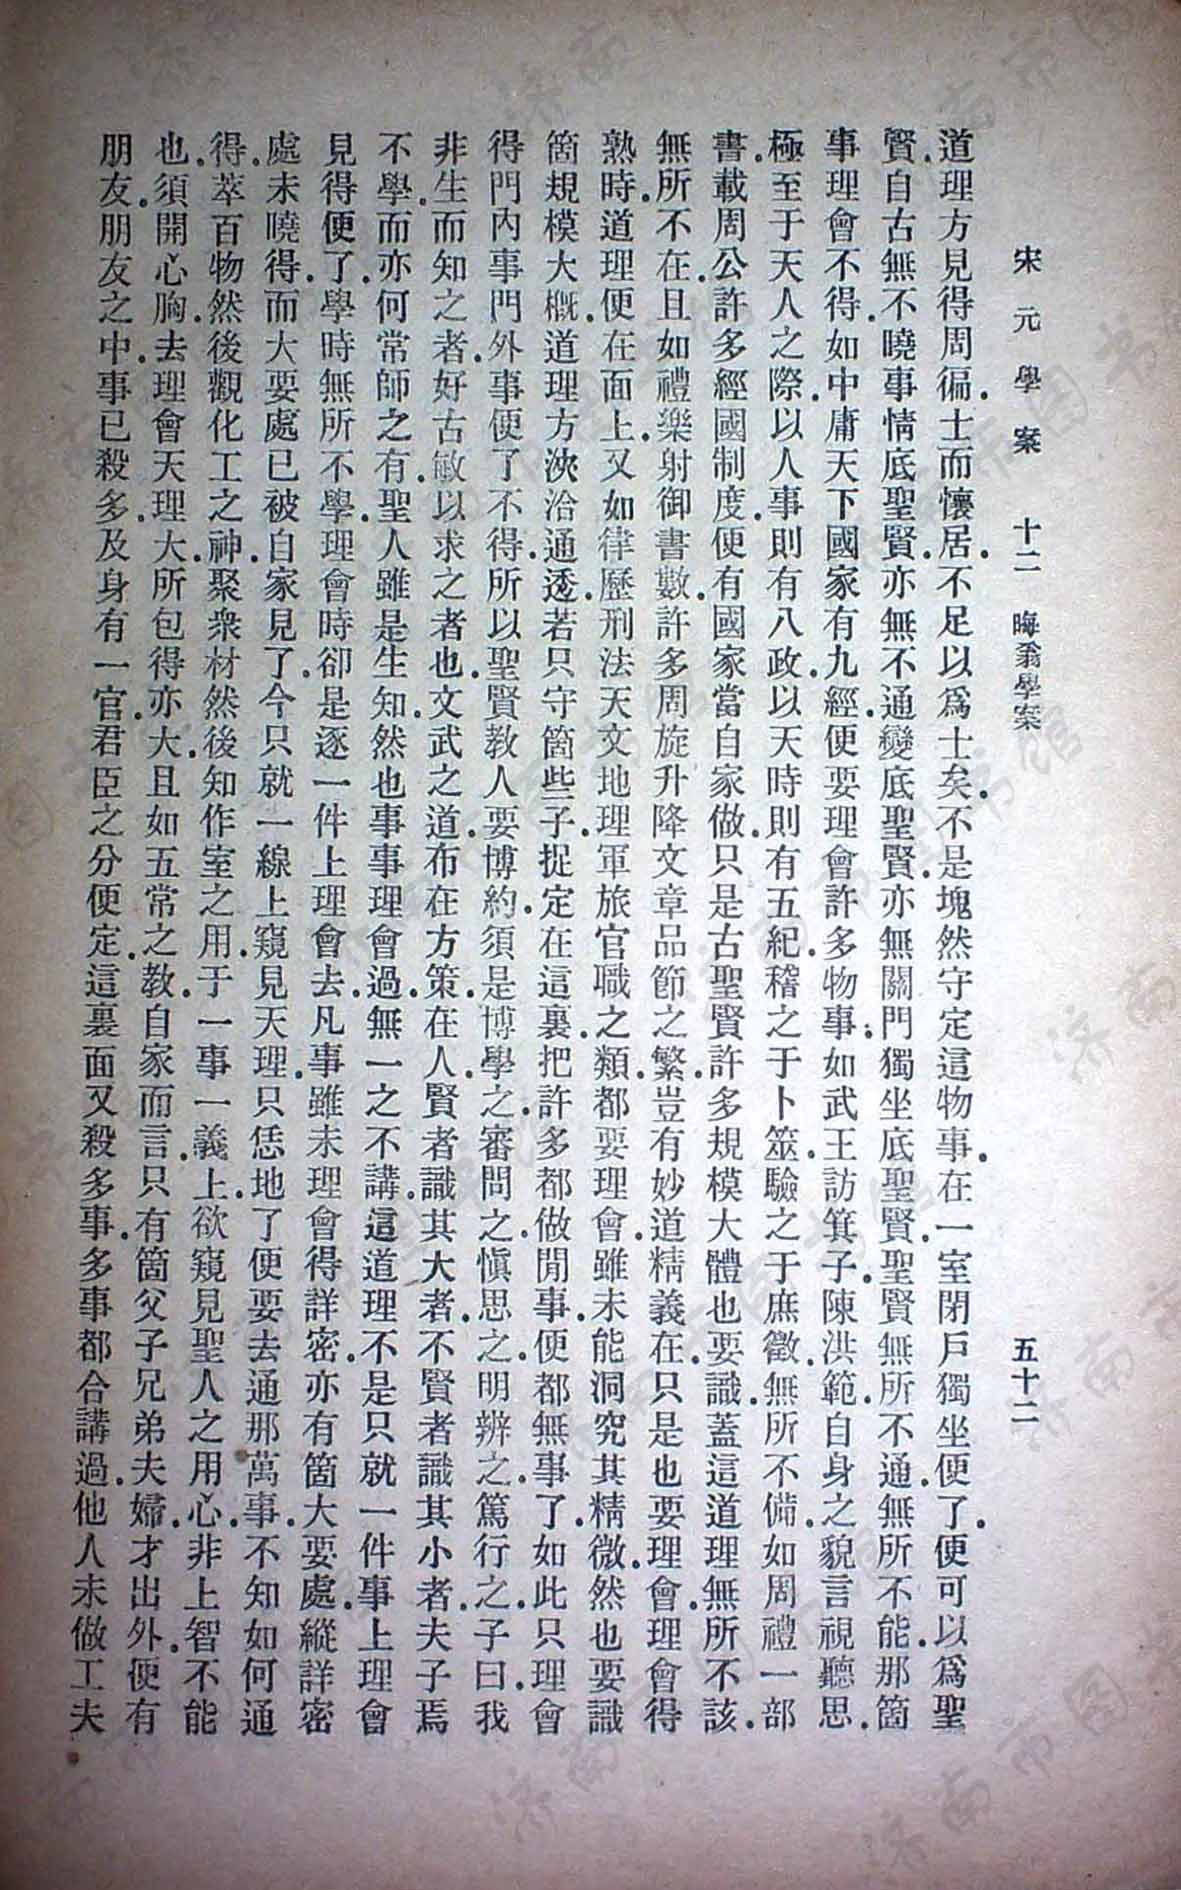 宋元學案 十二 晦翁學案 五十二
道理方見得周徧.士而懷居.不足以爲士矣.不是塊然守定這物事.在一室閉戶獨坐便了.便可以爲聖
賢.自古無不曉事情底聖賢.亦無不通變底聖賢.亦無關門獨坐底聖賢.聖賢無所不通.無所不能.那箇
事理會不得.如中庸天下國家有九經.便要理會許多物事.如武王訪箕子.陳洪範.自身之貌言視聽思.
極至于天人之際.以人事.則有八政.以天時.則有五紀.稽之于卜筮.驗之于庶徵.無所不備.如周禮一部
書.載周公許多經國制度.便有國家當自家做.只是古聖賢許多規模大體也要識.蓋這道理無所不該.
無所不在.且如禮樂射御書數.許多周旋升降文章品節之繁.豈有妙道精義在.只是也要理會.理會得
熟時.道理便在面上.又如律歷刑法天文地理軍旅官職之類.都要理會.雖未能洞究其精微.然也要識
箇規模大概.道理方浹洽通透.若只守箇些子.捉定在這裏.把許多都做閒事.便都無事了.如此只理會
得門內事.門外事便了不得.所以聖賢教人.要博約.須是博學之.審問之.愼思之.明辨之.篤行之.子曰.我
非生而知之者.好古敏以求之者也.文武之道.布在方策.在人.賢者識其大者.不賢者識其小者.夫子焉
不學.而亦何常師之有.聖人雖是生知.然也事事理會過.無一之不講.這道理不是只就一件事上理會
見得便了.學時無所不學.理會時卻是逐一件上理會去.凡事雖未理會得詳密.亦有箇大要處.縱詳密
處未曉得.而大要處已被自家見了.今只就一線上窺見天理.只恁地了.便要去通那萬事.不知如何通
得.萃百物.然後觀化工之神.聚衆材.然後知作室之用.于一事一義上.欲窺見聖人之用心.非上智不能
也.須開心胸.去理會天理大.所包得亦大.且如五常之教.自家而言.只有箇父子兄弟夫婦.才出外.便有
朋友.朋友之中.事已殺多.及身有一官.君臣之分便定.這裏面又殺多事.多事都合講過.他人未做工夫.